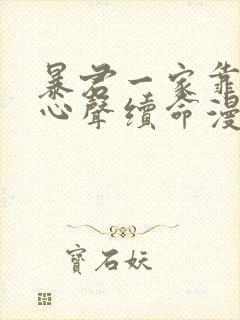 暴君一家靠
心聲續命漫
寶石妖